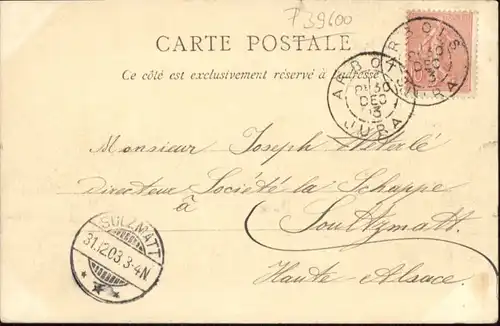 F39600
CARTE POSTALE
Ce côté est exclusivement réservé à l'adresse
ARBOIS
30
DEC
03
JURA
ARBOIS
DEC
JURA
Monsieur Joseph
Directeur Société la Schappe
à
Soultzmatt.
Haute Alsace
SULZMATT
31.12.03.3-4N